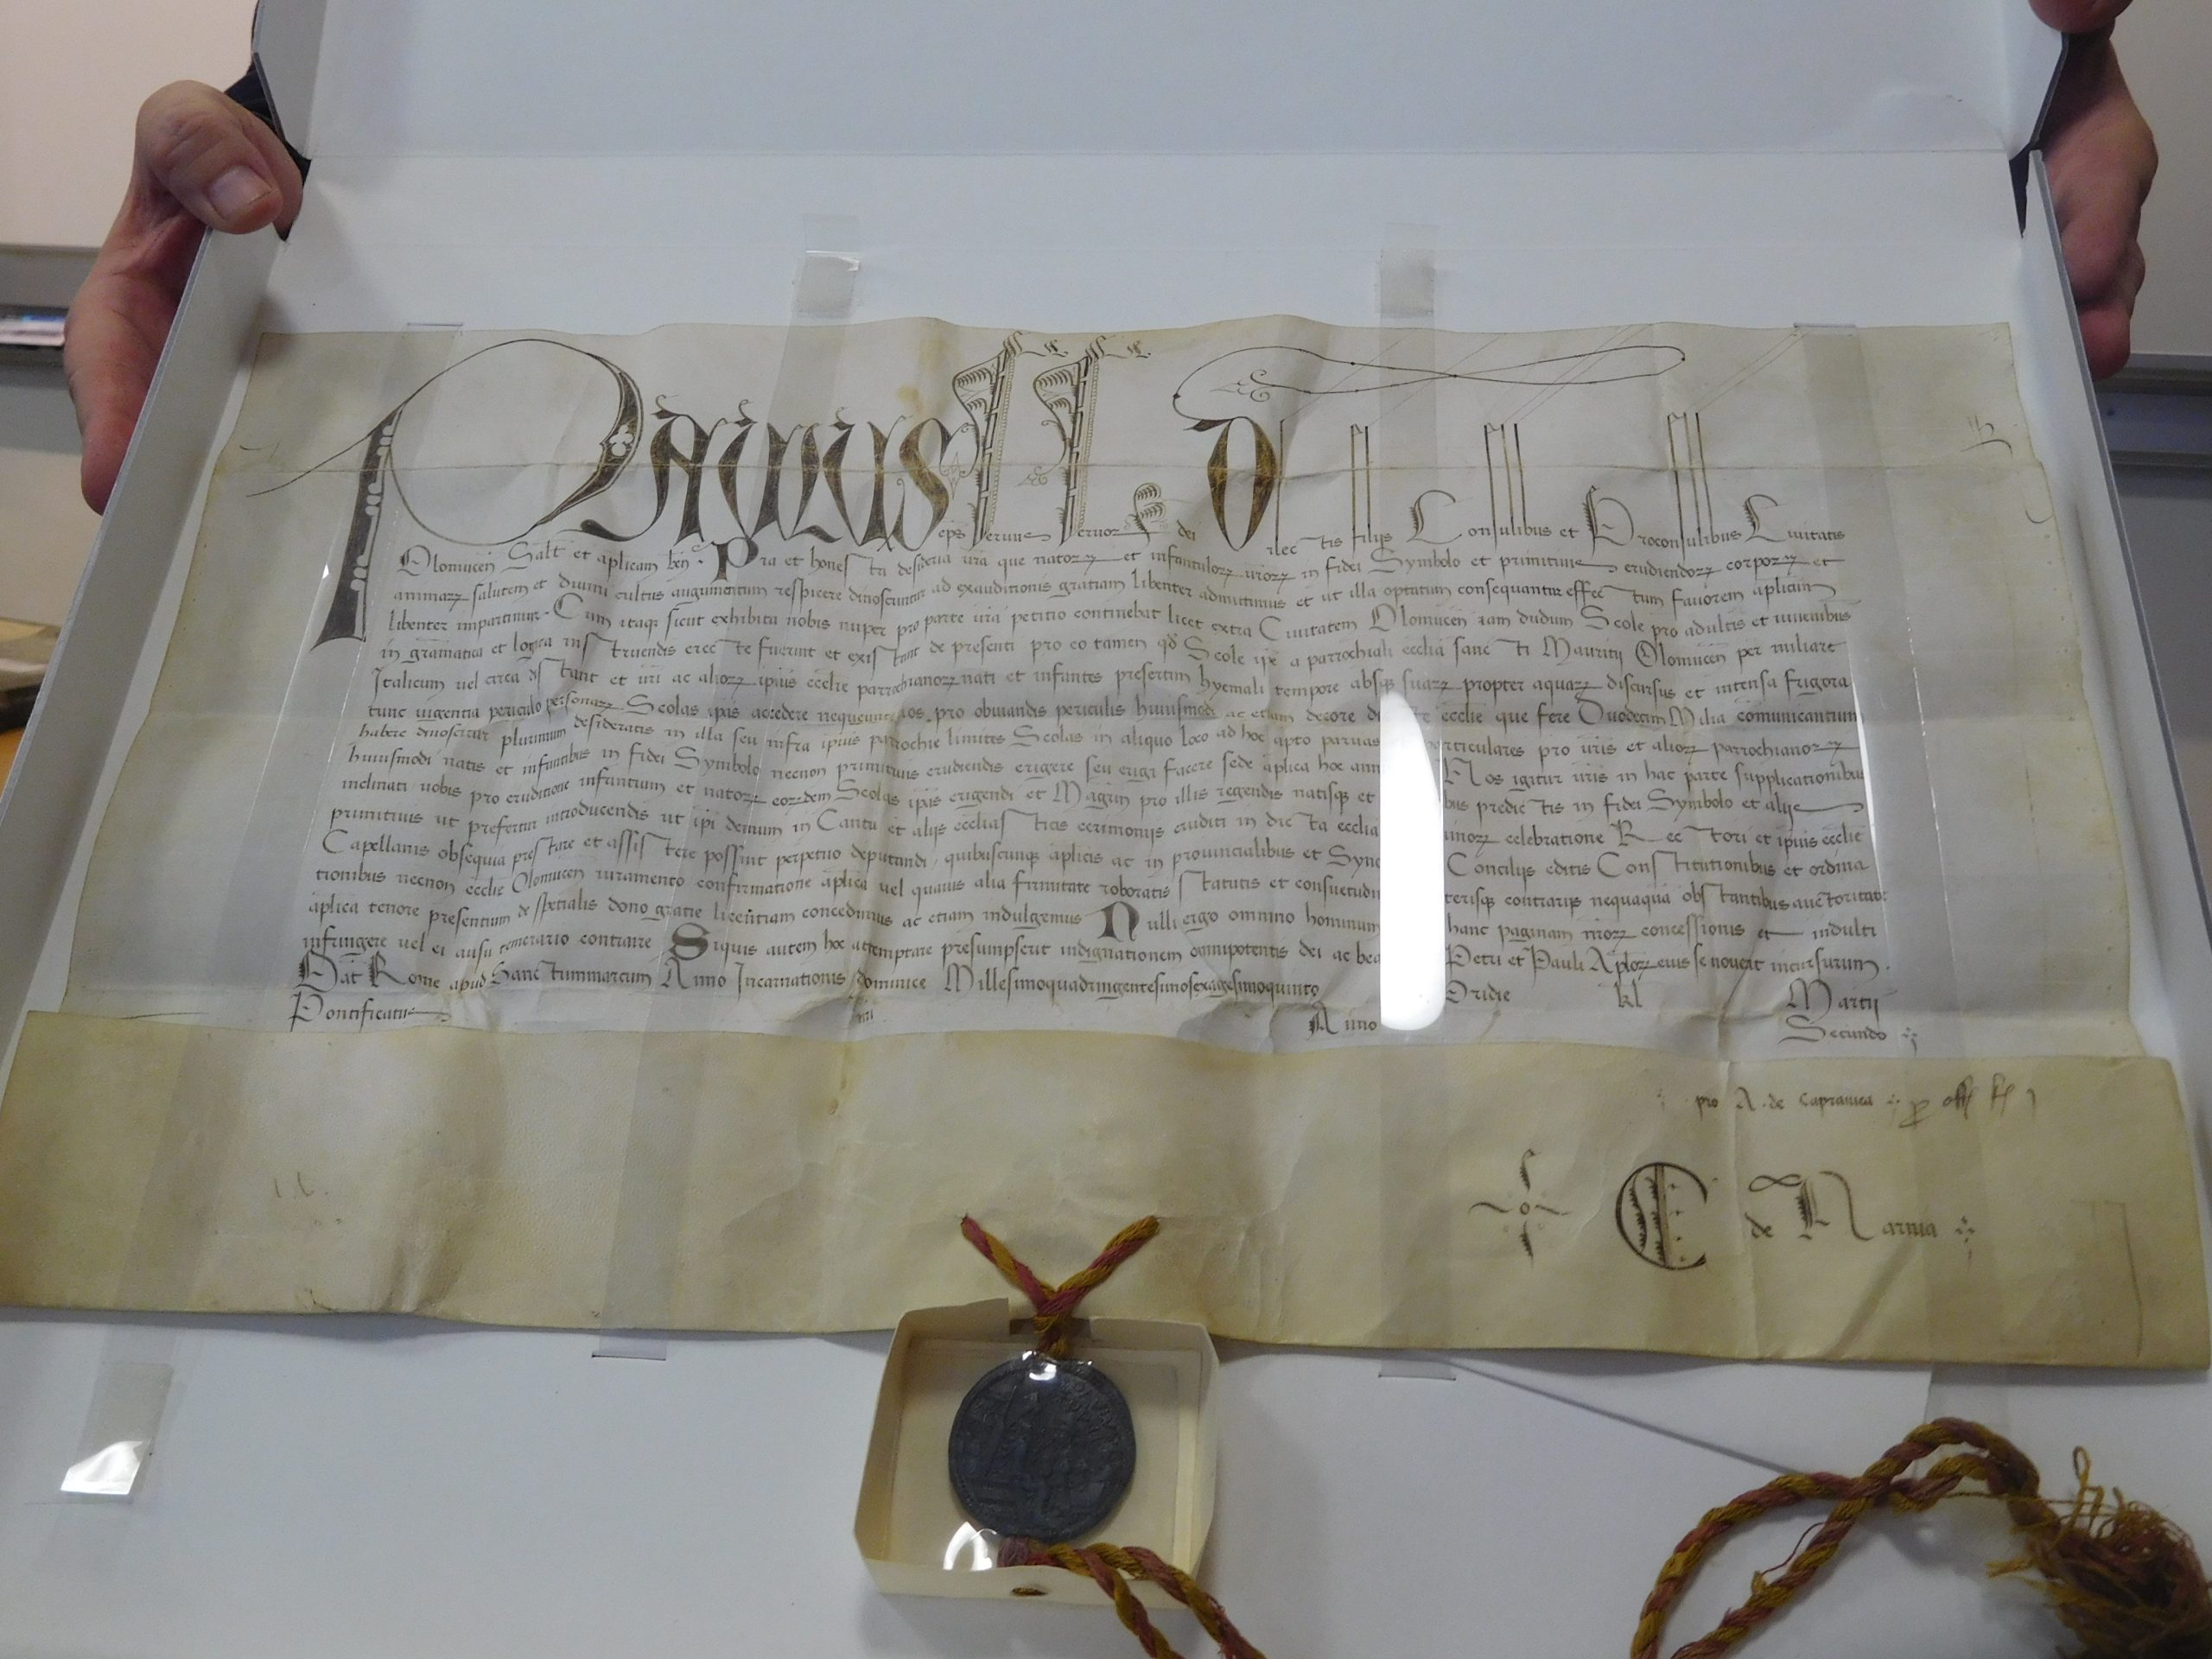 Paulus eps Servus Servor dei Dilectis filijs Consulibus et Proconsulibus Civitatis
Olomucen Salt et aplicam ben Pia et honesta desideria vra que nator et infantulor vror in fidei Symbolo et primitivis erudiendor corpor et
animar salutem et divini cultus augumentum respicere dinoscuntur ad exauditionis gratiam libenter admittimus et ut illa optatum consequantur effectum favorem aplicum
libenter impartimur Cum itaq sicut exhibita nobis nuper pro parte vra petitio continebat licet extra Civitatem Olomucen iam dudum Scole pro adultis et iuvenibus
in gramatica et logica instruendis erecte fuerint et existant de presenti pro eo tamen qd Scole ipe a parrochiali ecclia sancti Mauritij Olomucen per miliare
Italicum vel circa distant et vri ac alior ipius ecclie parrochianor nati et infantes presertim hyemali tempore absq suar propter aquar discursus et intensa frigora
tunc vigentia periculo personar Scolas ipas accedere nequeunt vos pro obviandis periculis huiusmodi ac etiam decore ecclie que fere Duodecim Milia comunicantium
habere dinoscitur plurimum desideratis in illa seu infra ipius parrochie limites Scolas in aliquo loco ad hoc apto parvas particulares pro vris et alior parrochianor
huiusmodi natis et infantibus in fidei Symbolo necnon primitivis erudiendis erigere seu erigi facere sede aplica hoc ann Nos igitur vris in hac parte supplicationibus
inclinati vobis pro eruditione infantium et nator eordem Scolas ipas erigendi et Magrm pro illis regendis natisq et bus predictis in fidei Symbolo et alijs
primitivis ut prefertur introducendis ut ipi demum in Cantu et alijs ecclesiasticis cerimonijs eruditi in dicta ecclia vinor celebratione Rectori et ipius ecclie
Capellanis obsequia prestare et assistere possint perpetuo deputandi quibuscunq aplicis ac in provincialibus et Syno Concilijs editis Constitutionibus et ordina
tionibus necnon ecclie Olomucen iuramento confirmatione aplica vel quavis alia firmitate roboratis Statutis et consuetudin terisq contrarijs nequaquā obstantibus auctoritate
aplica tenore presentium de spetialis dono gratie licentiam concedimus ac etiam indulgemus Nulli ergo omnino hominum hanc paginam nror concessionis et indulti
infringere vel ei ausu temerario contraire Siquis autem hoc attemptare presumpserit indignationem omnipotentis dei ac bea Petri et Pauli Aplor eius se noverit incursurum
Dat Rome apud Sanctummarcum Anno Incarnationis dominice Millesimoquadringentesimosexagesimoquinto Pridie kl Martij
Pontificatus Anno Secundo
pro A. de Capranica
C de Narnia